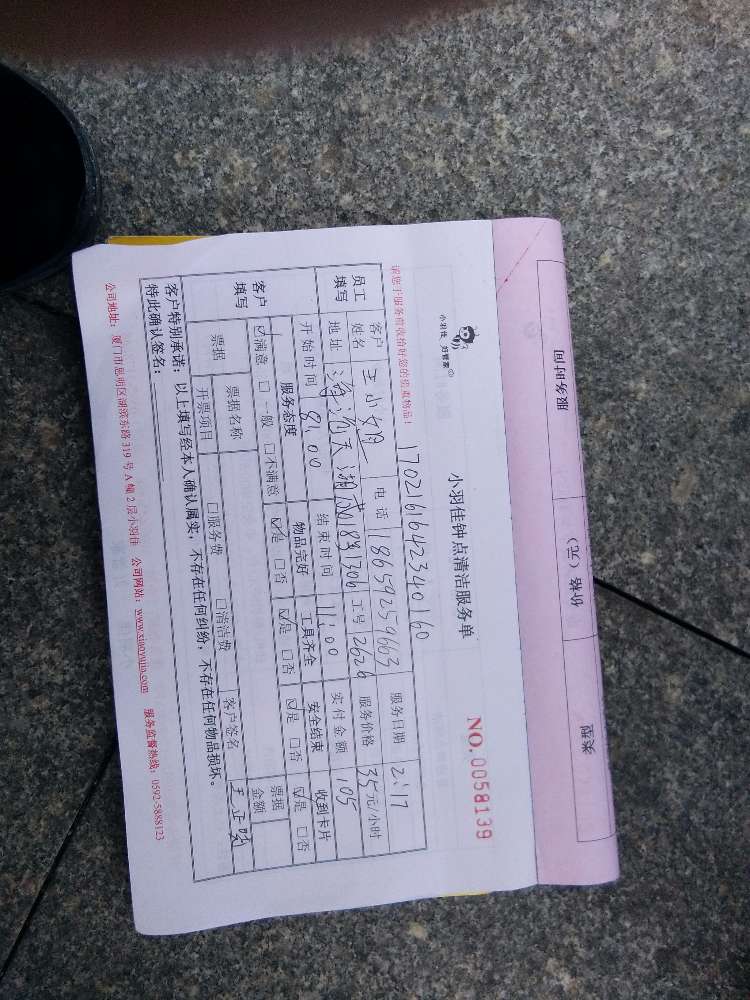 服务时间 价格（元） 类型
小羽佳 好管家
小羽佳钟点清洁服务单
NO.0058139
1702161642340160
请您于服务前收拾好您的贵重物品！
员工填写 客户姓名 王小姐 电话 18659259663 服务日期 2.17
地址 18#1306 工号 2626 服务价格 35元/小时
开始时间 8:00 结束时间 11:00 实付金额 105
客户填写 服务态度 物品完好 工具齐全 安全结束 收到卡片
☑满意 □一般 □不满意 ☑是 □否 ☑是 □否 ☑是 □否 ☑是 □否
票据 票据名称 票据金额
开票项目 □服务费 □清洁费 客户签名
客户特别承诺：以上填写经本人确认属实，不存在任何纠纷，不存在任何物品损坏。
特此确认签名：
公司地址：厦门市思明区湖滨东路319号A幢2层小羽佳 公司网站：www.xiaoyujia.com 服务监督热线：0592-5888123